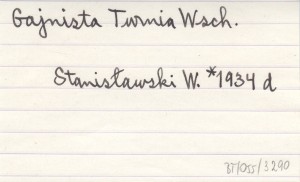 Gajnista Turnia Wsch.
Stanisławski W. *1934 d
BT/055/3290